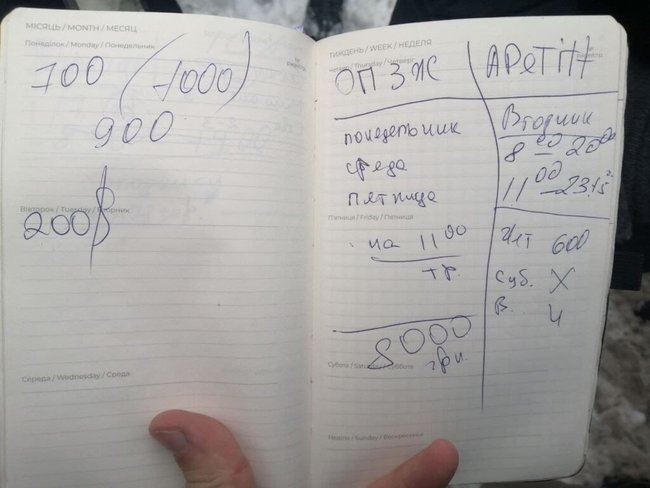 МІСЯЦЬ / MONTH / МЕСЯЦ
Понеділок / Monday / Понедельник
700 (1000)
900
Вівторок / Tuesday / Вторник
200$
Середа / Wednesday / Среда
ТИЖДЕНЬ / WEEK / НЕДЕЛЯ
Четвер / Thursday / Четверг
ОПЗЖ
понедельник
среда
пятница
П'ятниця / Friday / Пятница
на 11 00
тр.
8000
грн.
Субота / Saturday / Суббота
Неділя / Sunday / Воскресенье
Вторник
8 00 – 20 00
11 00 – 23.15
600
Суб. X
В. Ч